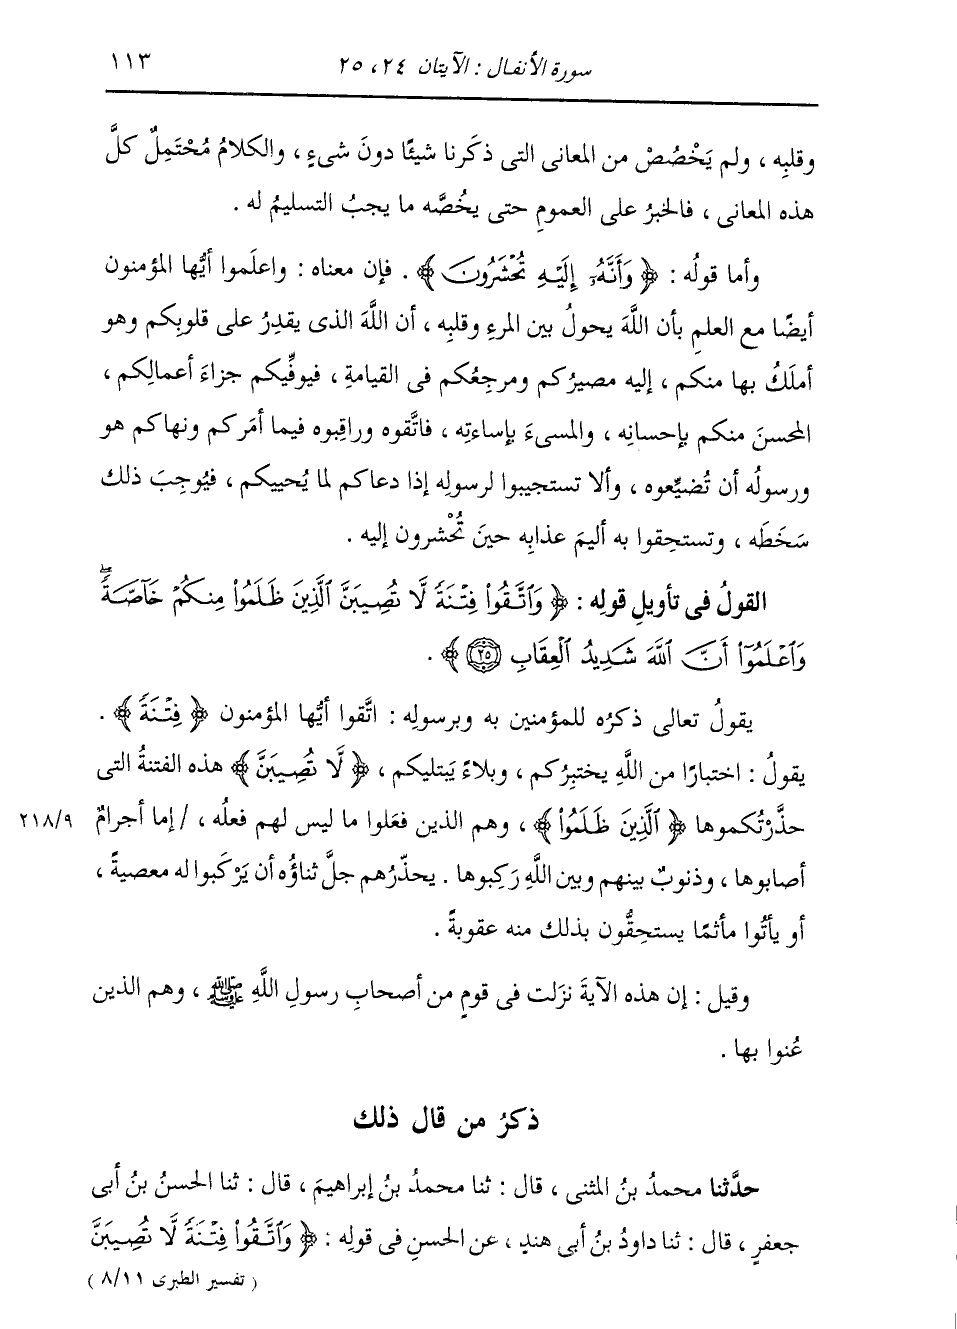 سورة الأنفال : الآيتان ٢٤ ، ٢٥ ١١٣
وقلبِه ، ولم يَخْصُصْ من المعانى التى ذكَرنا شيئًا دونَ شىءٍ ، والكلامُ مُحْتَمِلٌ كلَّ
هذه المعانى ، فالخبرُ على العمومِ حتى يخُصَّه ما يجبُ التسليمُ له .
وأما قولُه : ﴿ وَأَنَّهُۥٓ إِلَيْهِ تُحْشَرُونَ ﴾ . فإن معناه : واعلَموا أيُّها المؤمنون
أيضًا مع العلمِ بأن اللَّهَ يحولُ بين المرءِ وقلبِه ، أن اللَّهَ الذى يقدِرُ على قلوبِكم وهو
أملَكُ بها منكم ، إليه مصيرُكم ومرجِعُكم فى القيامةِ ، فيوفِّيكم جزاءَ أعمالِكم ،
المحسنَ منكم بإحسانِه ، والمسىءَ بإساءتِه ، فاتَّقوه وراقِبوه فيما أمَركم ونهاكم هو
ورسولُه أن تُضيِّعوه ، وألا تستجيبوا لرسولِه إذا دعاكم لما يُحييكم ، فيُوجِبَ ذلك
سَخَطَه ، وتستحِقوا به أليمَ عذابِه حينَ تُحْشرون إليه .
القولُ فى تأويلِ قولِه : ﴿ وَٱتَّقُوا۟ فِتْنَةً لَّا تُصِيبَنَّ ٱلَّذِينَ ظَلَمُوا۟ مِنكُمْ خَآصَّةً ۖ
وَٱعْلَمُوٓا۟ أَنَّ ٱللَّهَ شَدِيدُ ٱلْعِقَابِ ٢٥ ﴾ .
يقولُ تعالى ذكرُه للمؤمنين به وبرسولِه : اتَّقوا أيُّها المؤمنون ﴿ فِتْنَةً ﴾ .
يقولُ : اختبارًا من اللَّهِ يختبِرُكم ، وبلاءً يَبتليكم ، ﴿ لَّا تُصِيبَنَّ ﴾ هذه الفتنةُ التى
حذَّرْتُكموها ﴿ ٱلَّذِينَ ظَلَمُوا۟ ﴾ ، وهم الذين فعَلوا ما ليس لهم فعلُه ، / إما أجرامٌ ٢١٨/٩
أصابوها ، وذنوبٌ بينهم وبين اللَّهِ رَكِبوها . يحذّرُهم جلَّ ثناؤُه أن يَرْكَبوا له معصيةً ،
أو يأتُوا مأثمًا يستحِقُّون بذلك منه عقوبةً .
وقيل : إن هذه الآيةَ نزَلت فى قومٍ من أصحابِ رسولِ اللَّهِ ﷺ ، وهم الذين
عُنوا بها .
ذكرُ من قال ذلك
حدَّثنا محمدُ بنُ المثنى ، قال : ثنا محمدُ بنُ إبراهيمَ ، قال : ثنا الحسنُ بنُ أبى
جعفرٍ ، قال : ثنا داودُ بنُ أبى هندٍ ، عن الحسنِ فى قولِه : ﴿ وَٱتَّقُوا۟ فِتْنَةً لَّا تُصِيبَنَّ
( تفسير الطبرى ٨/١١ )